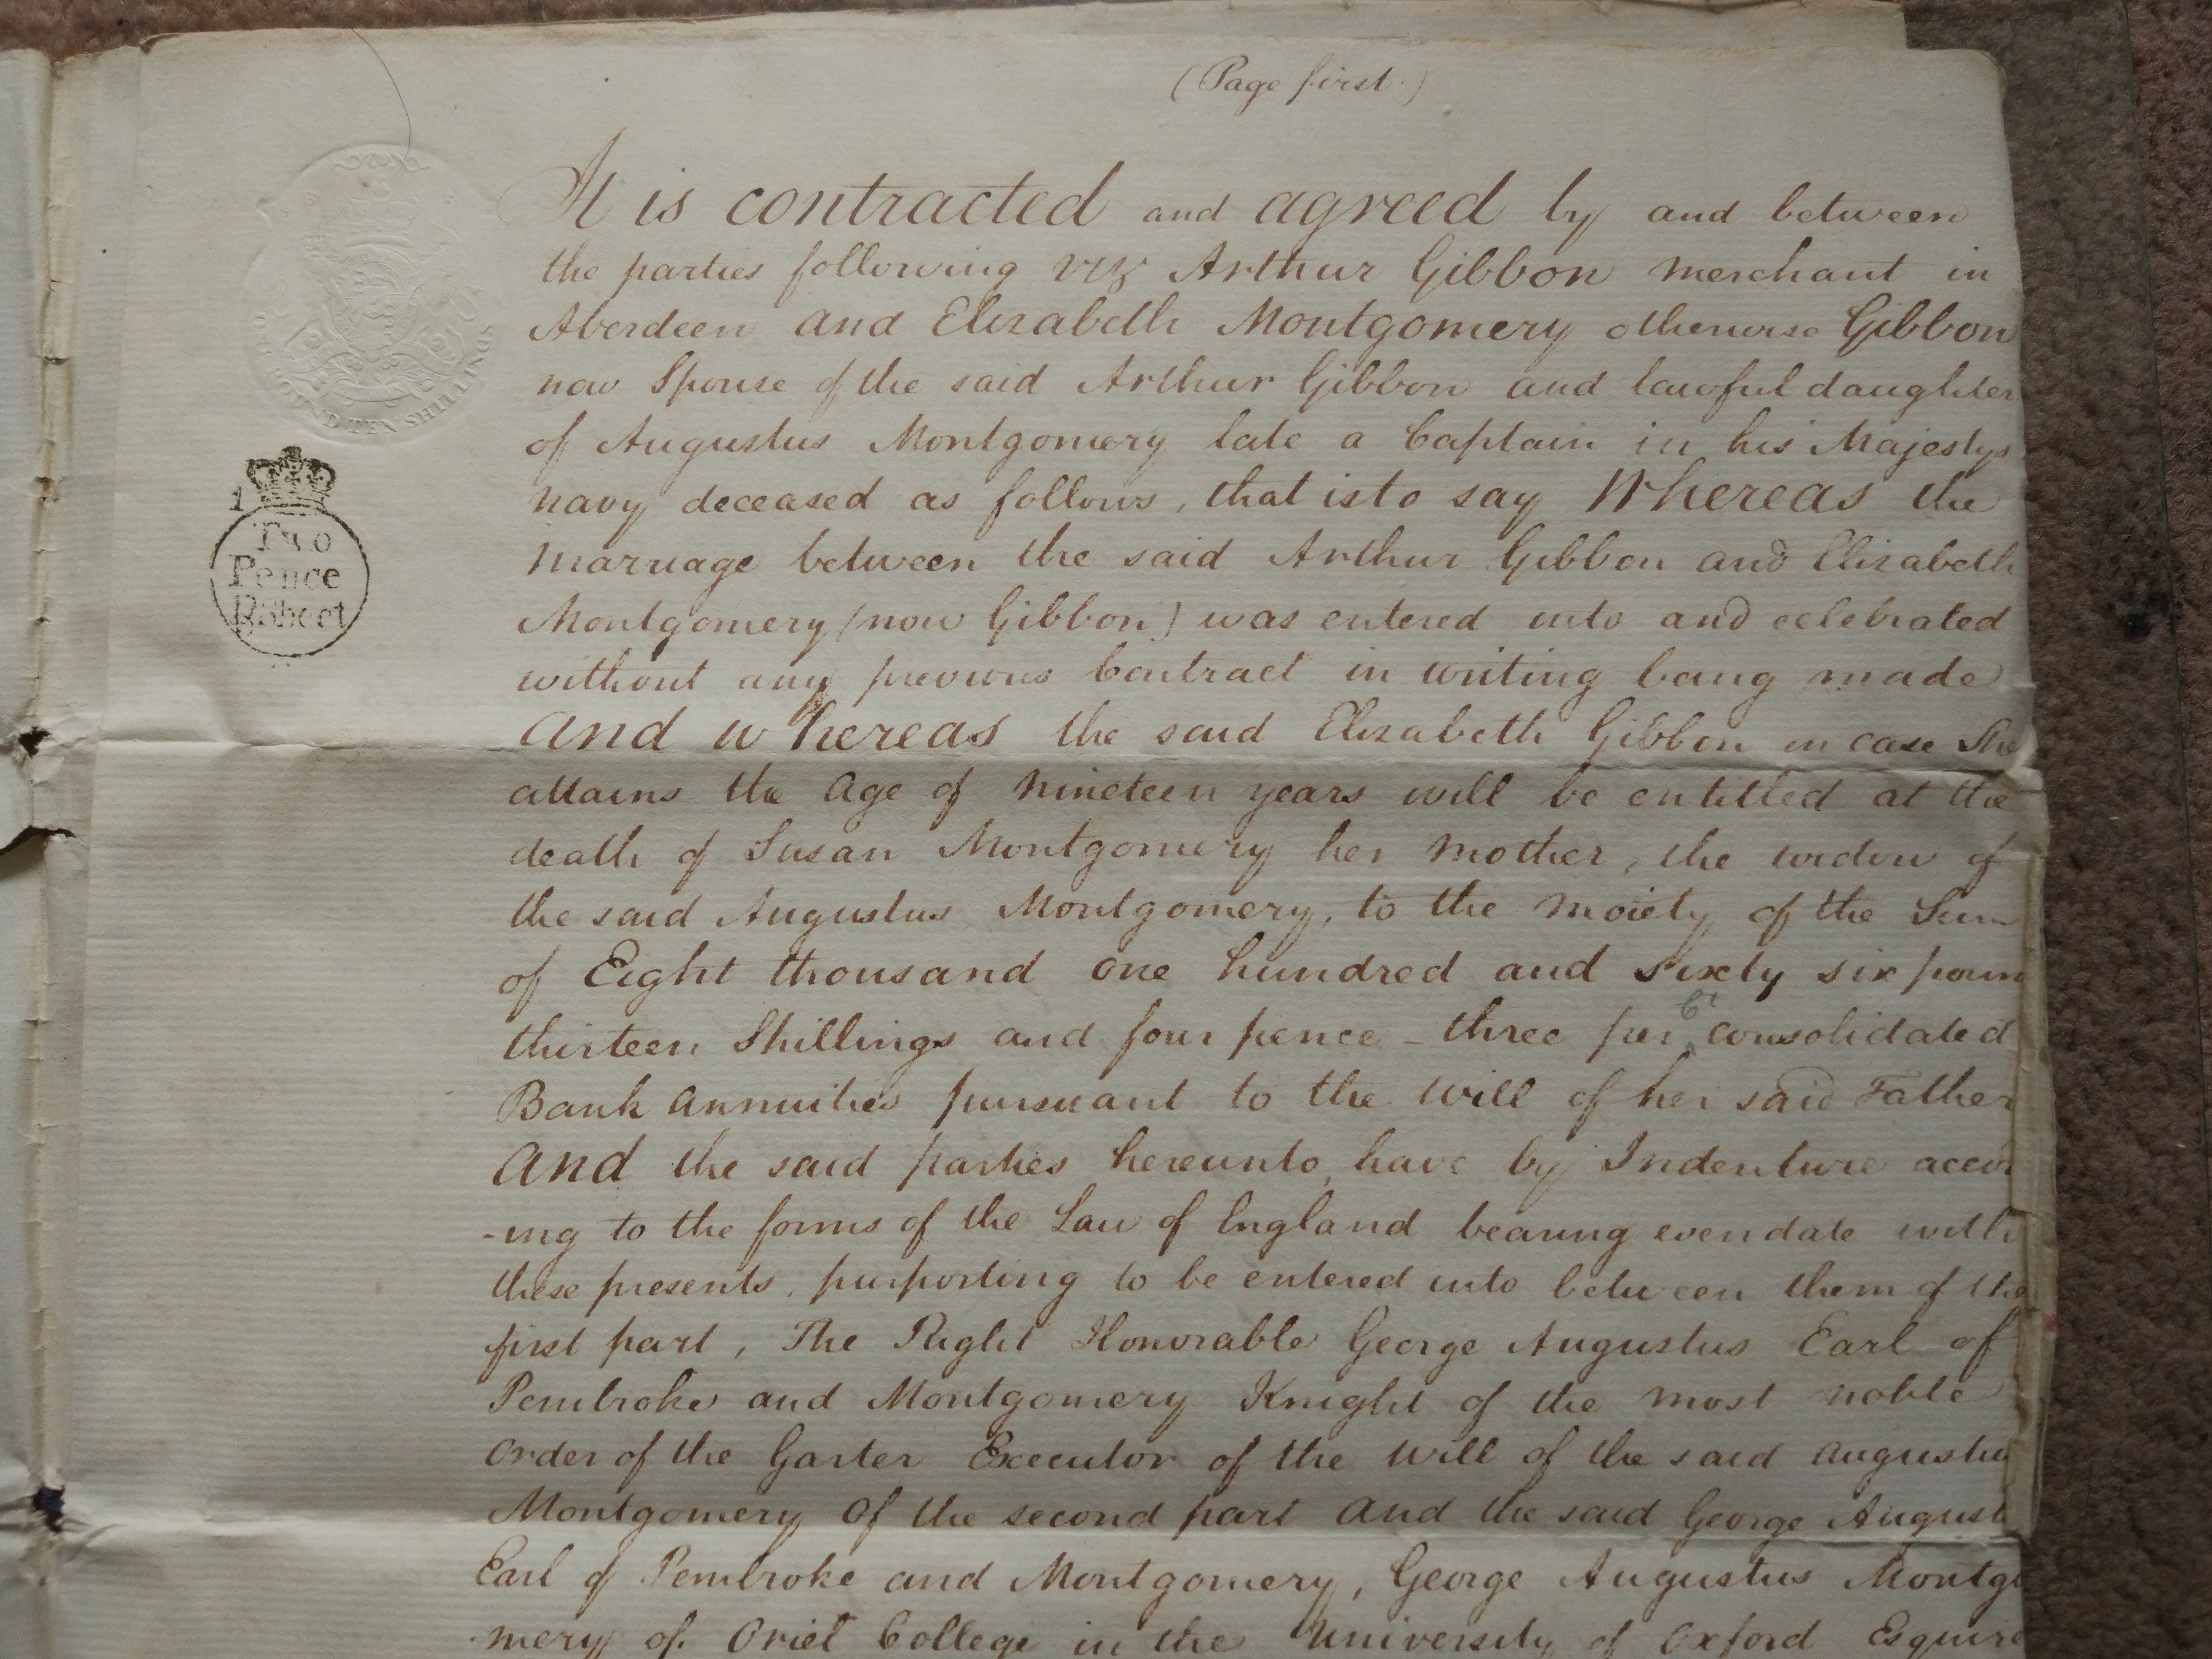 (Page first.)
It is contracted and agreed by and between
the parties following viz Arthur Gibbon merchant in
Aberdeen and Elizabeth Montgomery otherwise Gibbon
now Spouse of the said Arthur Gibbon and lawful daughter
of Augustus Montgomery late a Captain in his Majestys
navy deceased as follows, that is to say Whereas the
marriage between the said Arthur Gibbon and Elizabeth
Montgomery (now Gibbon) was entered into and celebrated
without any previous Contract in writing being made
And whereas the said Elizabeth Gibbon in case She
attains the age of nineteen years will be entitled at the
death of Susan Montgomery her mother, the widow of
the said Augustus Montgomery, to the moiety of the Sum
of Eight thousand one hundred and sixty six poun
thirteen Shillings and four pence - three per Ct consolidated
Bank annuities pursuant to the will of her said Father
And the said parties hereunto, have by Indenture accor
-ing to the forms of the Law of England bearing even date with
these presents, purporting to be entered into between them of the
first part, The Right Honorable George Augustus Earl of
Pembroke and Montgomery Knight of the most noble
order of the Garter Executor of the will of the said Augustu
Montgomery of the second part and the said George August
Earl of Pembroke and Montgomery, George Augustus Montgo
mery of Oriel College in the University of Oxford Esquire
POUND TEN SHILLINGS
1
Two
Pence
Pr Sheet